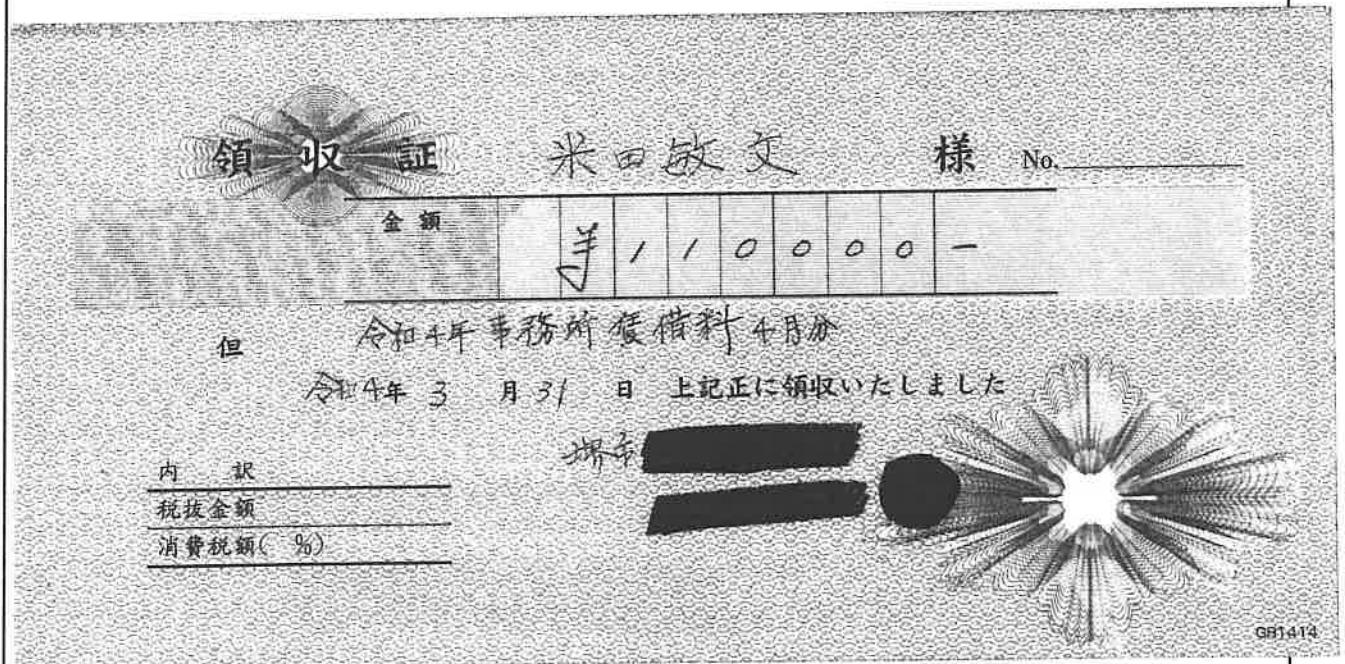 領収証 米田敏文 様 No.
金額 ¥110000-
但 令和4年事務所賃借料4月分
令和4年3月31日 上記正に領収いたしました
堺市
内訳
税抜金額
消費税額( %)
GB1414